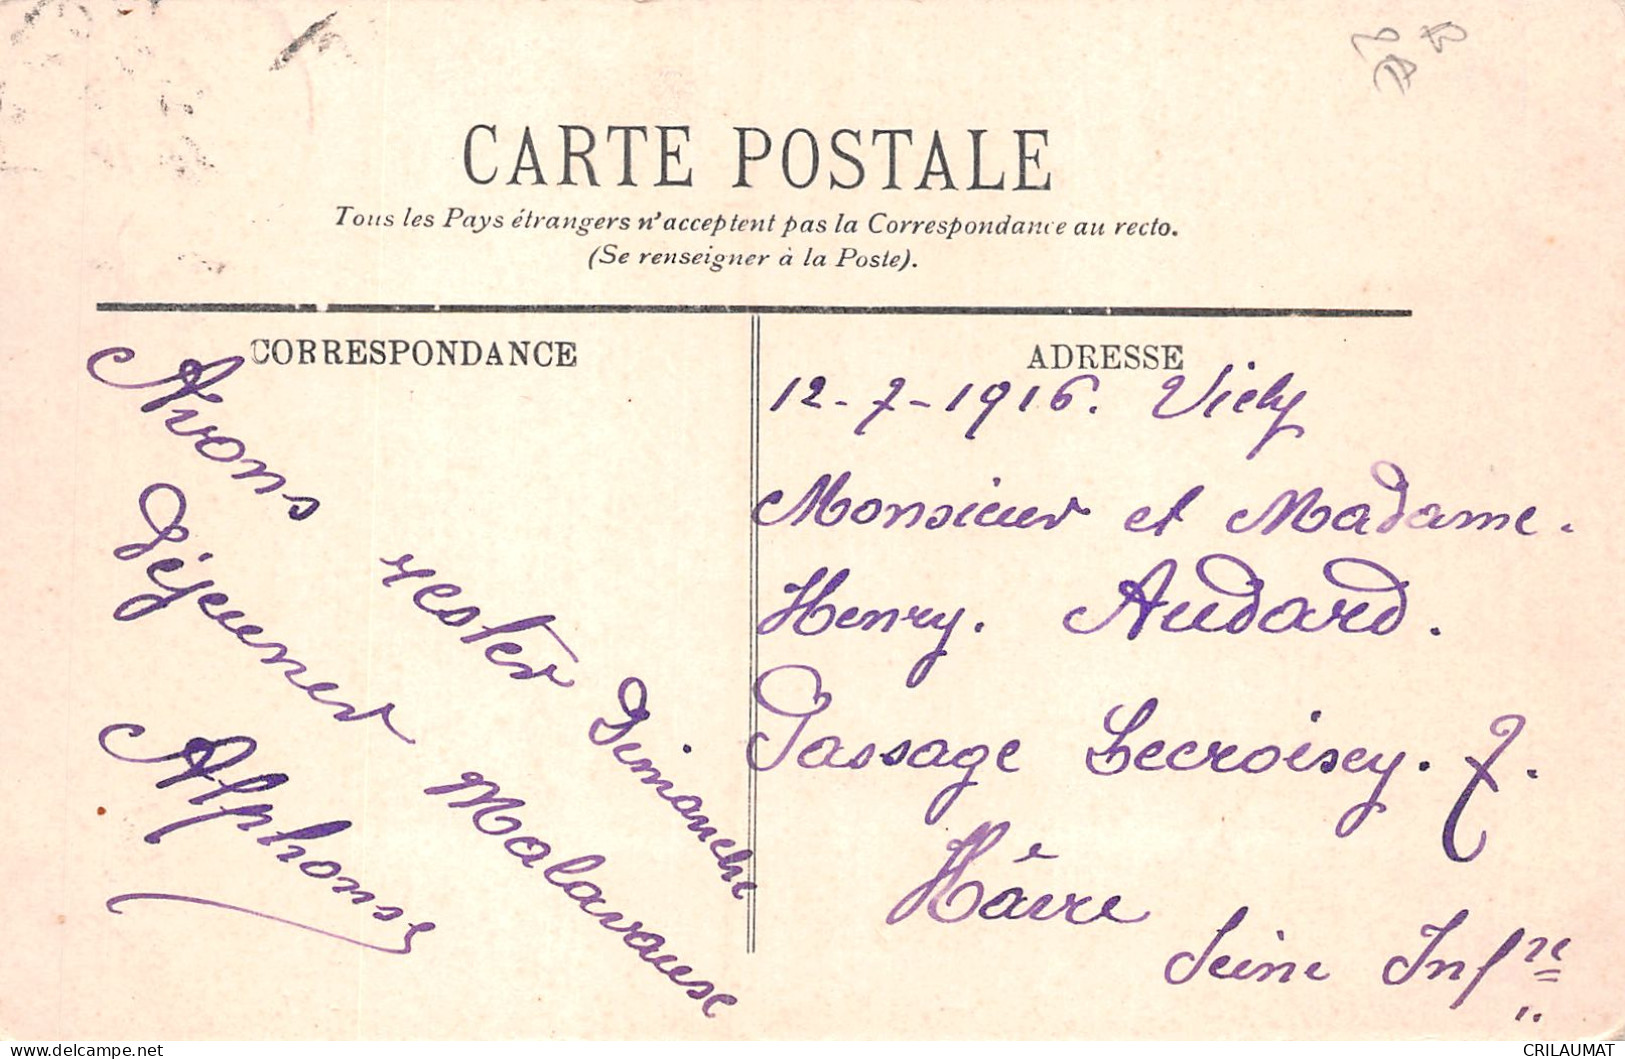 CARTE POSTALE
Tous les Pays étrangers n'acceptent pas la Correspondance au recto.
(Se renseigner à la Poste).
CORRESPONDANCE
Avons rester Dimanche
Déjeuner Malavaux
Alphonse
ADRESSE
12-7-1916. Vichy
Monsieur et Madame.
Henry. Audard.
Passage Lecroisey. 7.
Hâvre
Seine Infre
CRILAUMAT